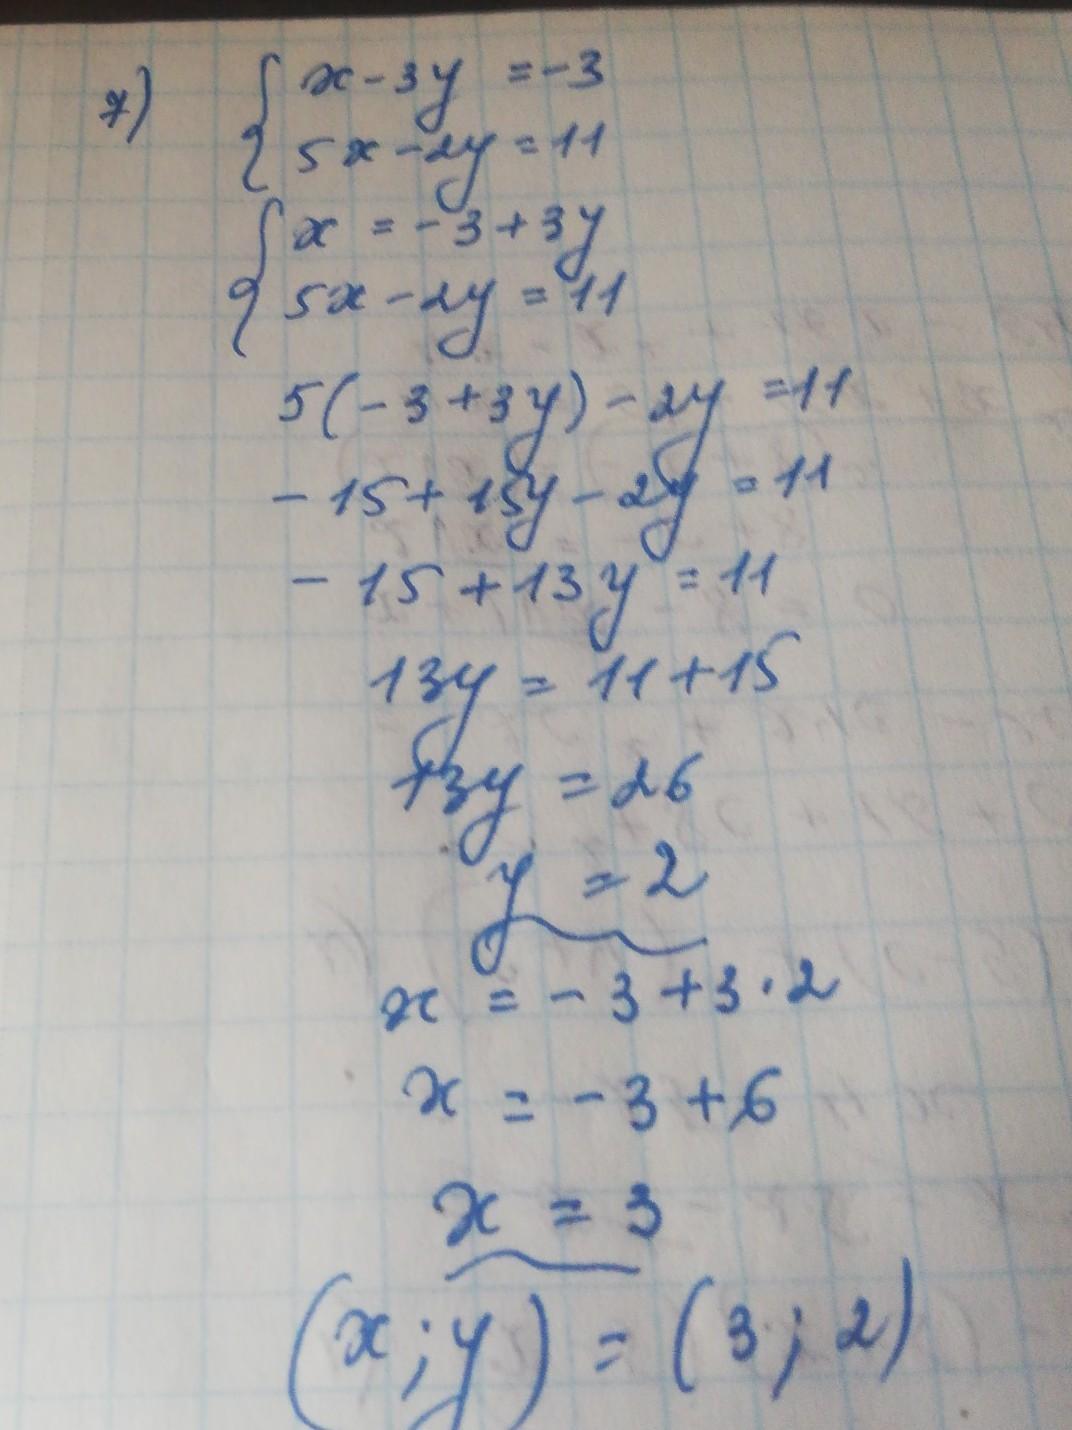 7) { x - 3y = -3
5x - 2y = 11
{ x = -3 + 3y
5x - 2y = 11
5(-3 + 3y) - 2y = 11
- 15 + 15y - 2y = 11
- 15 + 13y = 11
13y = 11 + 15
13y = 26
y = 2
x = -3 + 3 · 2
x = -3 + 6
x = 3
(x ; y) = (3 ; 2)